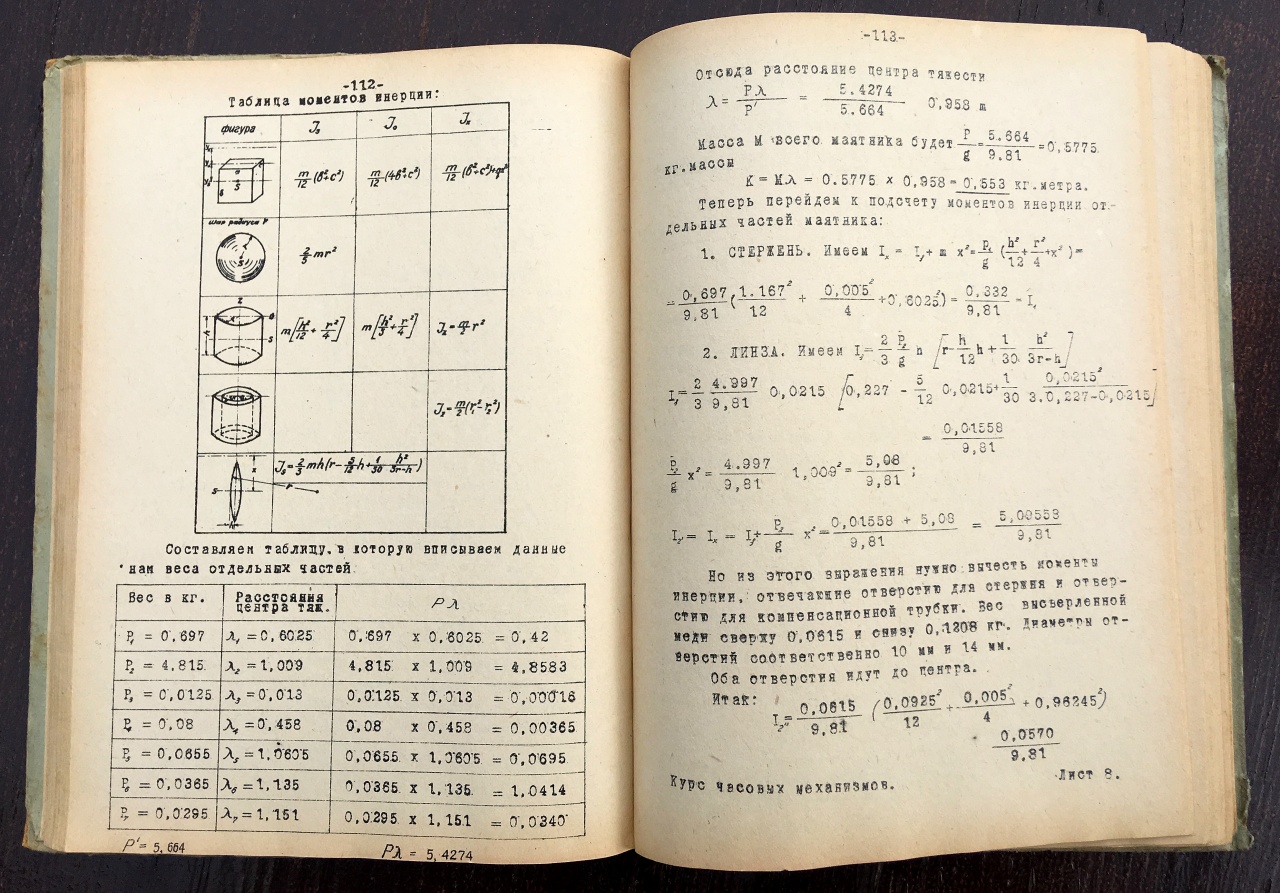 -112-
Таблица моментов инерции:
фигура J₀ J₀ Jₓ
m/12 (b²+c²) m/12 (4b²+c²) m/12 (b²+c²)+
шар радиуса r
2/5 mr²
m[h²/12 + r²/4] m[h²/3 + r²/4] J = m/2 r²
J = m/2 (r²-r²)
J = 2/3 mh(r - 5/12 h + 1/30 h²/3r-h)
Составляем таблицу, в которую вписываем данные
нам веса отдельных частей.
Вес в кг. Расстояния центра тяж. Pλ
P₁ = 0,697 λ₁ = 0,6025 0,697 x 0,6025 = 0,42
P₂ = 4,815 λ₂ = 1,009 4,815 x 1,009 = 4,8583
P₃ = 0,0125 λ₃ = 0,013 0,0125 x 0,013 = 0,00016
P₄ = 0,08 λ₄ = 0,458 0,08 x 0,458 = 0,00365
P₅ = 0,0655 λ₅ = 1,0605 0,0655 x 1,0605 = 0,0695
P₆ = 0,0365 λ₆ = 1,135 0,0365 x 1,135 = 1,0414
P₇ = 0,0295 λ₇ = 1,151 0,0295 x 1,151 = 0,0340
P' = 5,664 Pλ = 5,4274
-113-
Отсюда расстояние центра тяжести
λ = Pλ/P' = 5.4274/5.664 0,958 m
Масса M всего маятника будет P/g = 5.664/9.81 = 0,5775
кг.массы
K = Mλ = 0.5775 x 0,958 = 0,553 кг.метра.
Теперь перейдем к подсчету моментов инерции от-
дельных частей маятника:
1. СТЕРЖЕНЬ. Имеем Iₓ = I + m x² = P/g (h²/12 + r²/4 + x²) =
= 0,697/9,81 (1.167²/12 + 0,005²/4 + 0,6025²) = 0,332/9,81 = I₁
2. ЛИНЗА. Имеем I = 2/3 P/g h [r - h/12 h + 1/30 h²/3r-h]
I = 2/3 4.997/9,81 0,0215 [0,227 - 5/12 0,0215 + 1/30 0,0215²/3.0,227-0,0215]
= 0,01558/9,81
P/g x² = 4.997/9,81 1,009² = 5,08/9,81 ;
I = Iₓ = I + P/g x² = 0,01558 + 5,08/9,81 = 5,09558/9,81
Но из этого выражения нужно вычесть моменты
инерции, отвечающие отверстию для стержня и отвер-
стию для компенсационной трубки. Вес высверленной
меди сверху 0,0615 и снизу 0,1208 кг. Диаметры от-
верстий соответственно 10 мм и 14 мм.
Оба отверстия идут до центра.
Итак:
I = 0,0615/9,81 (0,0925²/12 + 0,005²/4 + 0,96245²)
0,0570/9,81
Курс часовых механизмов. Лист 8.